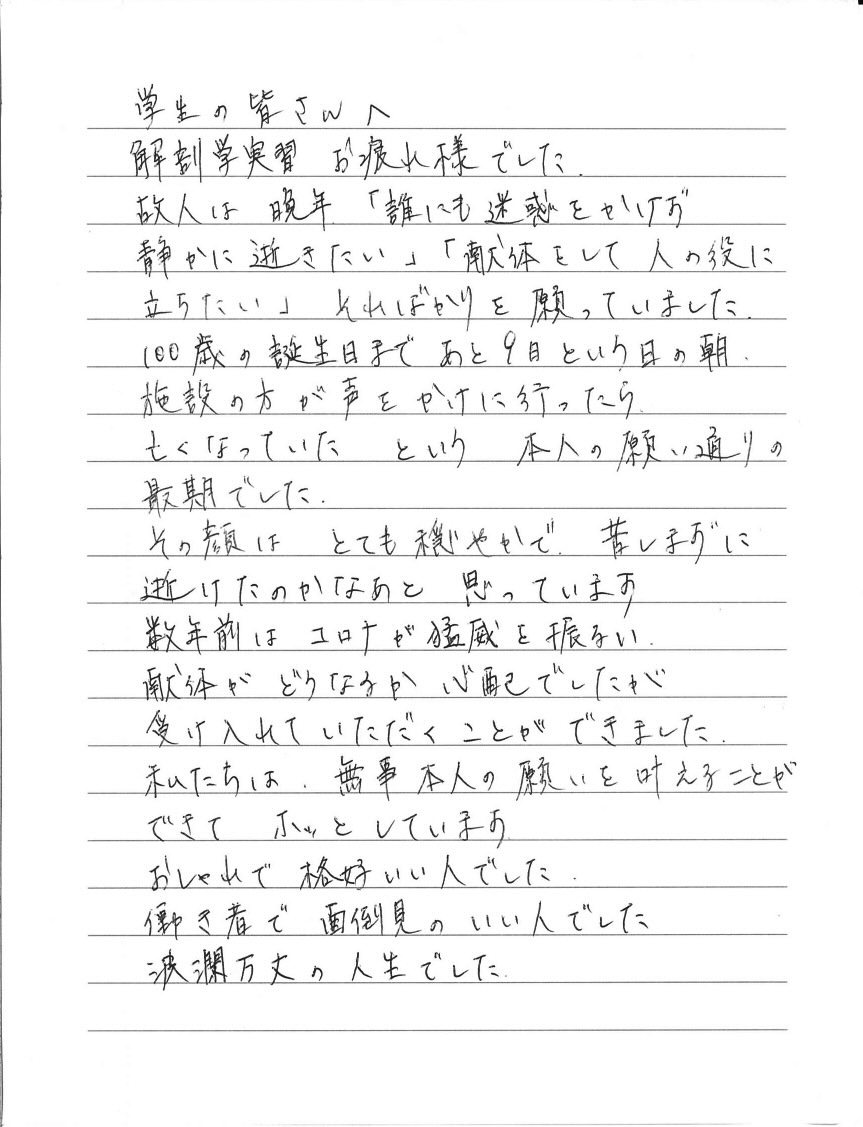 学生の皆さんへ
解剖学実習 お疲れ様でした.
故人は 晩年 「誰にも迷惑をかけず
静かに逝きたい」「献体をして人の役に
立ちたい」 そればかりを願っていました.
100歳の誕生日まで あと9日という日の朝.
施設の方が声をかけに行ったら
亡くなっていた という 本人の願い通りの
最期でした.
その顔は とても穏やかで. 苦しまずに
逝けたのかなあと 思っています
数年前は コロナが猛威を振るい.
献体が どうなるか 心配でしたが
受け入れていただくことができました.
私たちは. 無事本人の願いを叶えることが
できて ホッとしています
おしゃれで 格好いい人でした.
働き者で 面倒見の いい人でした
波瀾万丈の人生でした.